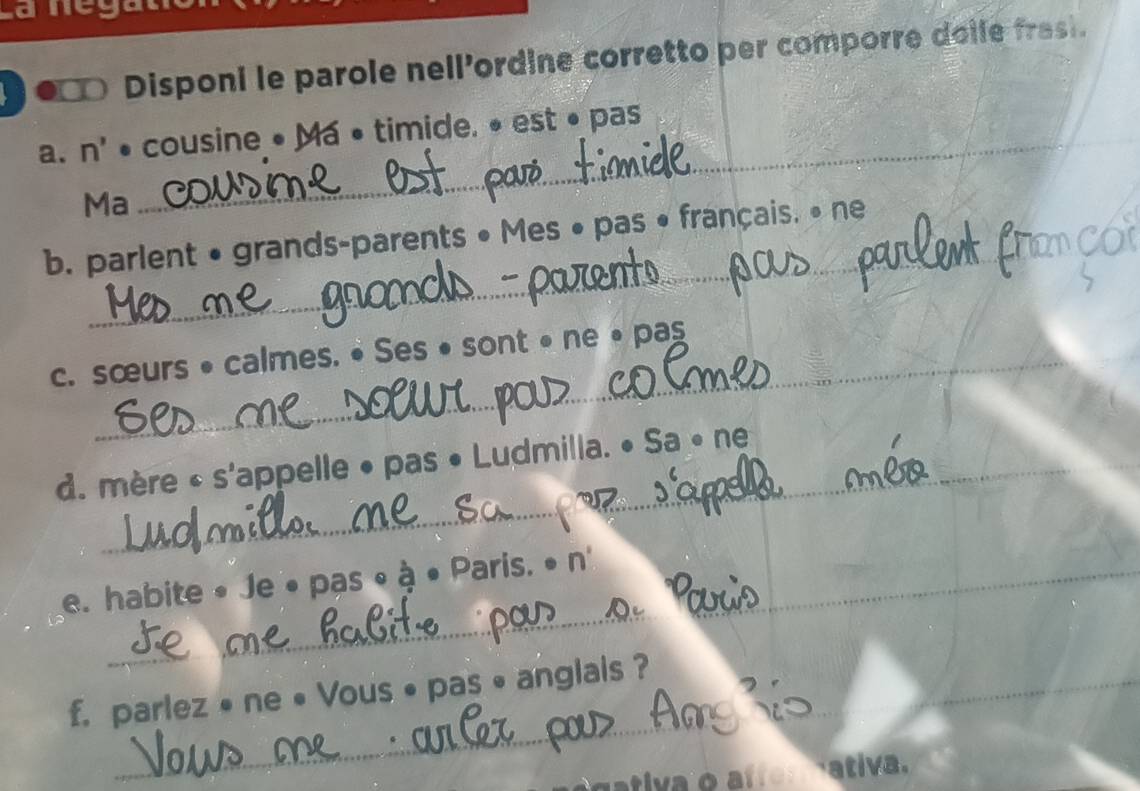 La négation
Disponi le parole nell'ordine corretto per comporre delle frasi.
a. n' • cousine • Ma • timide. • est • pas
Ma cousine est pas timide
b. parlent • grands-parents • Mes • pas • français. • ne
Mes ne grands-parents pas parlent françois
c. sœurs • calmes. • Ses • sont • ne • pas
Ses ne soeur pas colmes
d. mère • s'appelle • pas • Ludmilla. • Sa • ne
Ludmilla ne sa pas s'appella mére
e. habite • Je • pas • à • Paris. • n'
Je ne habite pas a Paris
f. parlez • ne • Vous • pas • anglais ?
Vous ne arlez pas
o affermativa.